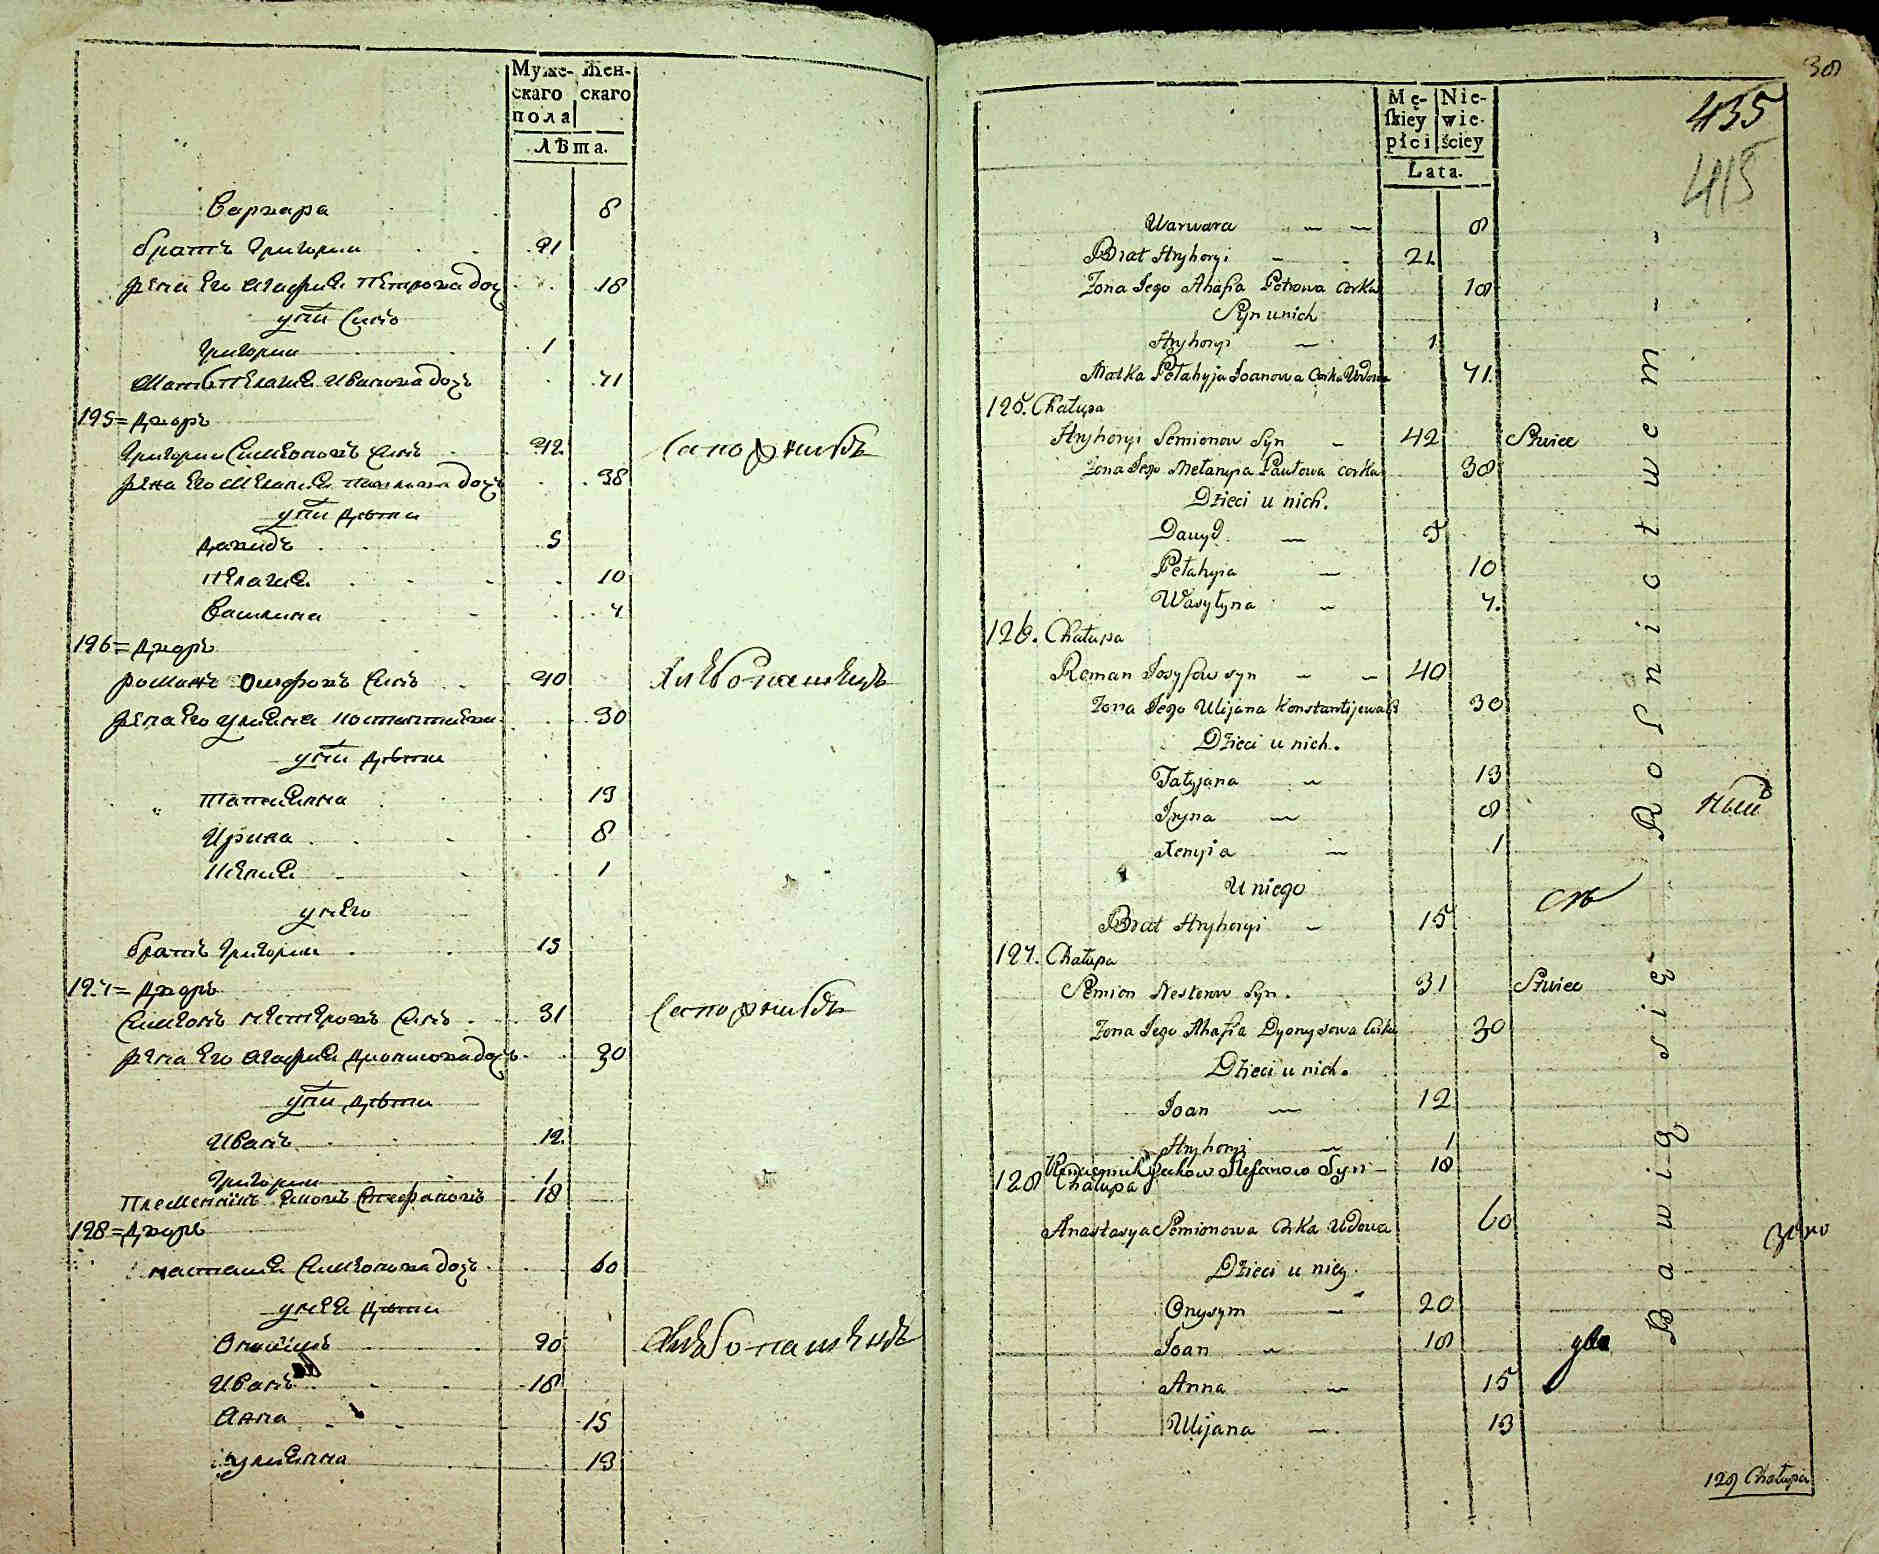 Муже- Жен-
скаго скаго
пола
Лѣта.
Варвара 8
братъ Григории 21
жена Его Агафия Петрова доч 18
у них Синъ
Григории 1
Мать Пелагия Иванова дочъ 71
125= Дворъ
Григории Симеоновъ Синъ 42 Сапожникъ
жена Его Мелания Павлова дочъ 38
у них дѣти
Давидъ 5
Пелагия 10
Василина 7
126= Дворъ
Романъ Осифовъ Синъ 40 Хлѣбопашецъ
жена Его Улияна Константиева 30
у них дѣти
Татиянна 13
Ирина 8
Ксения 1
у него
братъ Григории 15
127= Дворъ
Симеонъ Нестеровъ Синъ 31 Сапожникъ
жена Его Агафия Дионисова дочъ 30
у них дѣти
Иванъ 12
Григории 1
Племенникъ Яковъ Стефановъ 18
128= Дворъ
Настасия Симеонова дочъ 60
у нея дѣти
Онисимъ 20 Хлѣбопашенъ
Иванъ 18
Анна 15
Улиянна 13
38
435
415
Mę- Nie-
skiey wie-
płci ściey
Lata.
Warwara 8
Brat Hryhoryi 21
Zona Jego Ahafia Petrowa corka 18
Syn u nich
Hryhoryi 1
Matka Pełahyja Joanowa Corka Wdowa 71.
125. Chałupa
Hryhoryi Semionow Syn 42 Szwiec
Zona Jego Mełanyia Pawłowa corka 38
Dzieci u nich.
Dawyd 5
Pełahyia 10
Wasyłyna 7.
126. Chałupa
Roman Josyfow syn 40
Zona Jego Ulijana Konstantijewa 30
Dzieci u nich.
Tatyjana 13
Iryna 8
Xenyia 1
U niego
Brat Hryhoryi 15
127. Chałupa
Semion Nesterow Syn. 31 Szwiec
Zona Jego Ahafia Dyonyzowa Corka 30
Dzieci u nich.
Joan 12
Hryhoryi 1
Jakow Stefanow Syn 18
128 Chałupa
Anastasya Semionowa Corka Wdowa 60
Dzieci u niey
Onysym 20
Joan 18
Anna 15
Ulijana 13
129 Chałupa